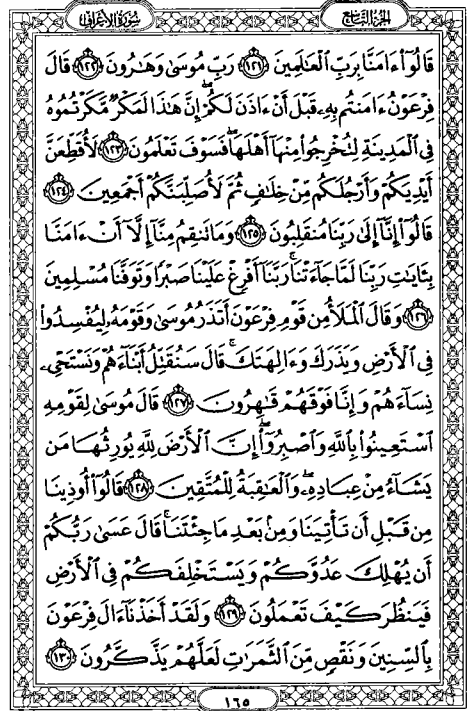 سُورَةُ الأَعْرَافِ
الجُزْءُ التَّاسِعُ
قَالُوٓا۟ ءَامَنَّا بِرَبِّ ٱلْعَـٰلَمِينَ ١٢١ رَبِّ مُوسَىٰ وَهَـٰرُونَ ١٢٢ قَالَ
فِرْعَوْنُ ءَامَنتُم بِهِۦ قَبْلَ أَنْ ءَاذَنَ لَكُمْ ۖ إِنَّ هَـٰذَا لَمَكْرٌ مَّكَرْتُمُوهُ
فِى ٱلْمَدِينَةِ لِتُخْرِجُوا۟ مِنْهَآ أَهْلَهَا ۖ فَسَوْفَ تَعْلَمُونَ ١٢٣ لَأُقَطِّعَنَّ
أَيْدِيَكُمْ وَأَرْجُلَكُم مِّنْ خِلَـٰفٍ ثُمَّ لَأُصَلِّبَنَّكُمْ أَجْمَعِينَ ١٢٤
قَالُوٓا۟ إِنَّآ إِلَىٰ رَبِّنَا مُنقَلِبُونَ ١٢٥ وَمَا تَنقِمُ مِنَّآ إِلَّآ أَنْ ءَامَنَّا
بِـَٔايَـٰتِ رَبِّنَا لَمَّا جَآءَتْنَا ۚ رَبَّنَآ أَفْرِغْ عَلَيْنَا صَبْرًا وَتَوَفَّنَا مُسْلِمِينَ
١٢٦ وَقَالَ ٱلْمَلَأُ مِن قَوْمِ فِرْعَوْنَ أَتَذَرُ مُوسَىٰ وَقَوْمَهُۥ لِيُفْسِدُوا۟
فِى ٱلْأَرْضِ وَيَذَرَكَ وَءَالِهَتَكَ ۚ قَالَ سَنُقَتِّلُ أَبْنَآءَهُمْ وَنَسْتَحْىِۦ
نِسَآءَهُمْ وَإِنَّا فَوْقَهُمْ قَـٰهِرُونَ ١٢٧ قَالَ مُوسَىٰ لِقَوْمِهِ
ٱسْتَعِينُوا۟ بِٱللَّهِ وَٱصْبِرُوٓا۟ ۖ إِنَّ ٱلْأَرْضَ لِلَّهِ يُورِثُهَا مَن
يَشَآءُ مِنْ عِبَادِهِۦ ۖ وَٱلْعَـٰقِبَةُ لِلْمُتَّقِينَ ١٢٨ قَالُوٓا۟ أُوذِينَا
مِن قَبْلِ أَن تَأْتِيَنَا وَمِنۢ بَعْدِ مَا جِئْتَنَا ۚ قَالَ عَسَىٰ رَبُّكُمْ
أَن يُهْلِكَ عَدُوَّكُمْ وَيَسْتَخْلِفَكُمْ فِى ٱلْأَرْضِ
فَيَنظُرَ كَيْفَ تَعْمَلُونَ ١٢٩ وَلَقَدْ أَخَذْنَآ ءَالَ فِرْعَوْنَ
بِٱلسِّنِينَ وَنَقْصٍ مِّنَ ٱلثَّمَرَٰتِ لَعَلَّهُمْ يَذَّكَّرُونَ ١٣٠
١٦٥